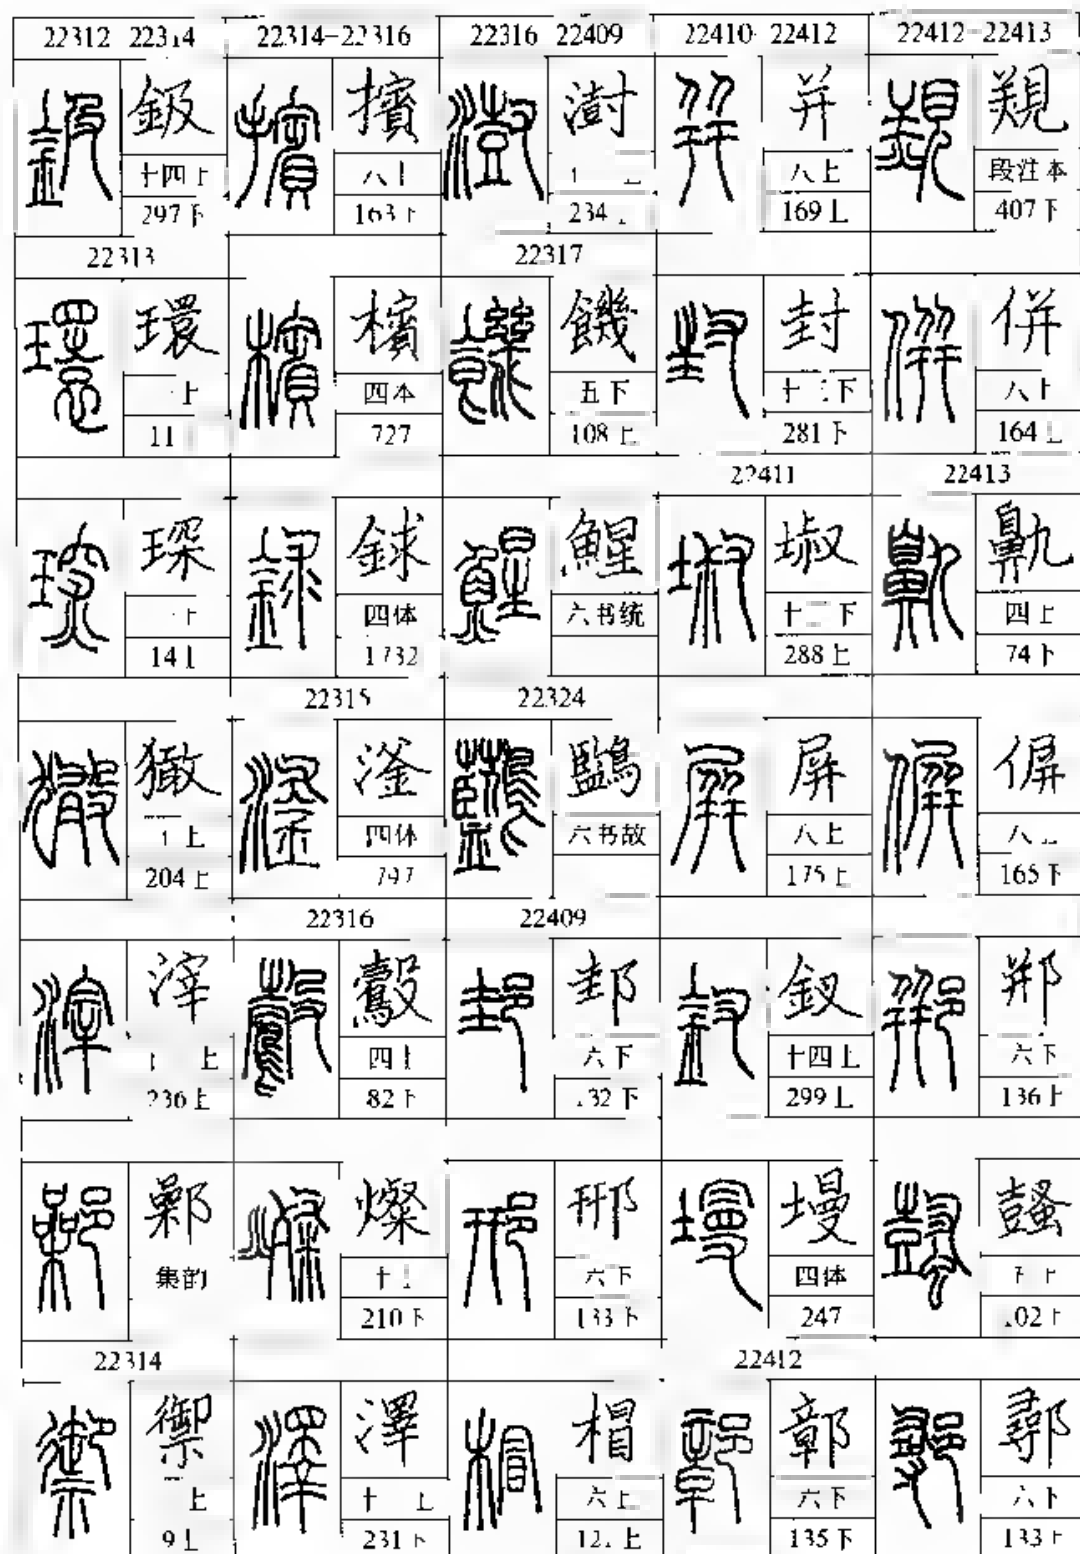 22312 22314
鈒
十四上
297下
22313
環
上
11
琛
14上
獙
上
204上
滓
上
236上
鄵
集韵
22314
禦
上
9上
22314-22316
擯
八上
163下
檳
四本
727
銶
四体
1732
22315
滏
四体
797
22316
鷇
四上
82下
燦
十上
210下
澤
十 上
231下
22316 22409
澍
234上
22317
饑
五下
108上
鯹
六书统
22324
鹽
六书故
22409
邽
六下
132下
邢
六下
133下
椙
六上
12 上
22410 22412
并
八上
169上
封
十三下
281下
22411
埱
十三下
288上
屏
八上
175上
釵
十四上
299上
墁
四体
247
22412
鄣
六下
135下
22412-22413
段注本
407下
併
八上
164上
22413
鼽
四上
74下
偋
八
165下
郱
六下
136上
鼜
五上
102上
鄩
六下
133上